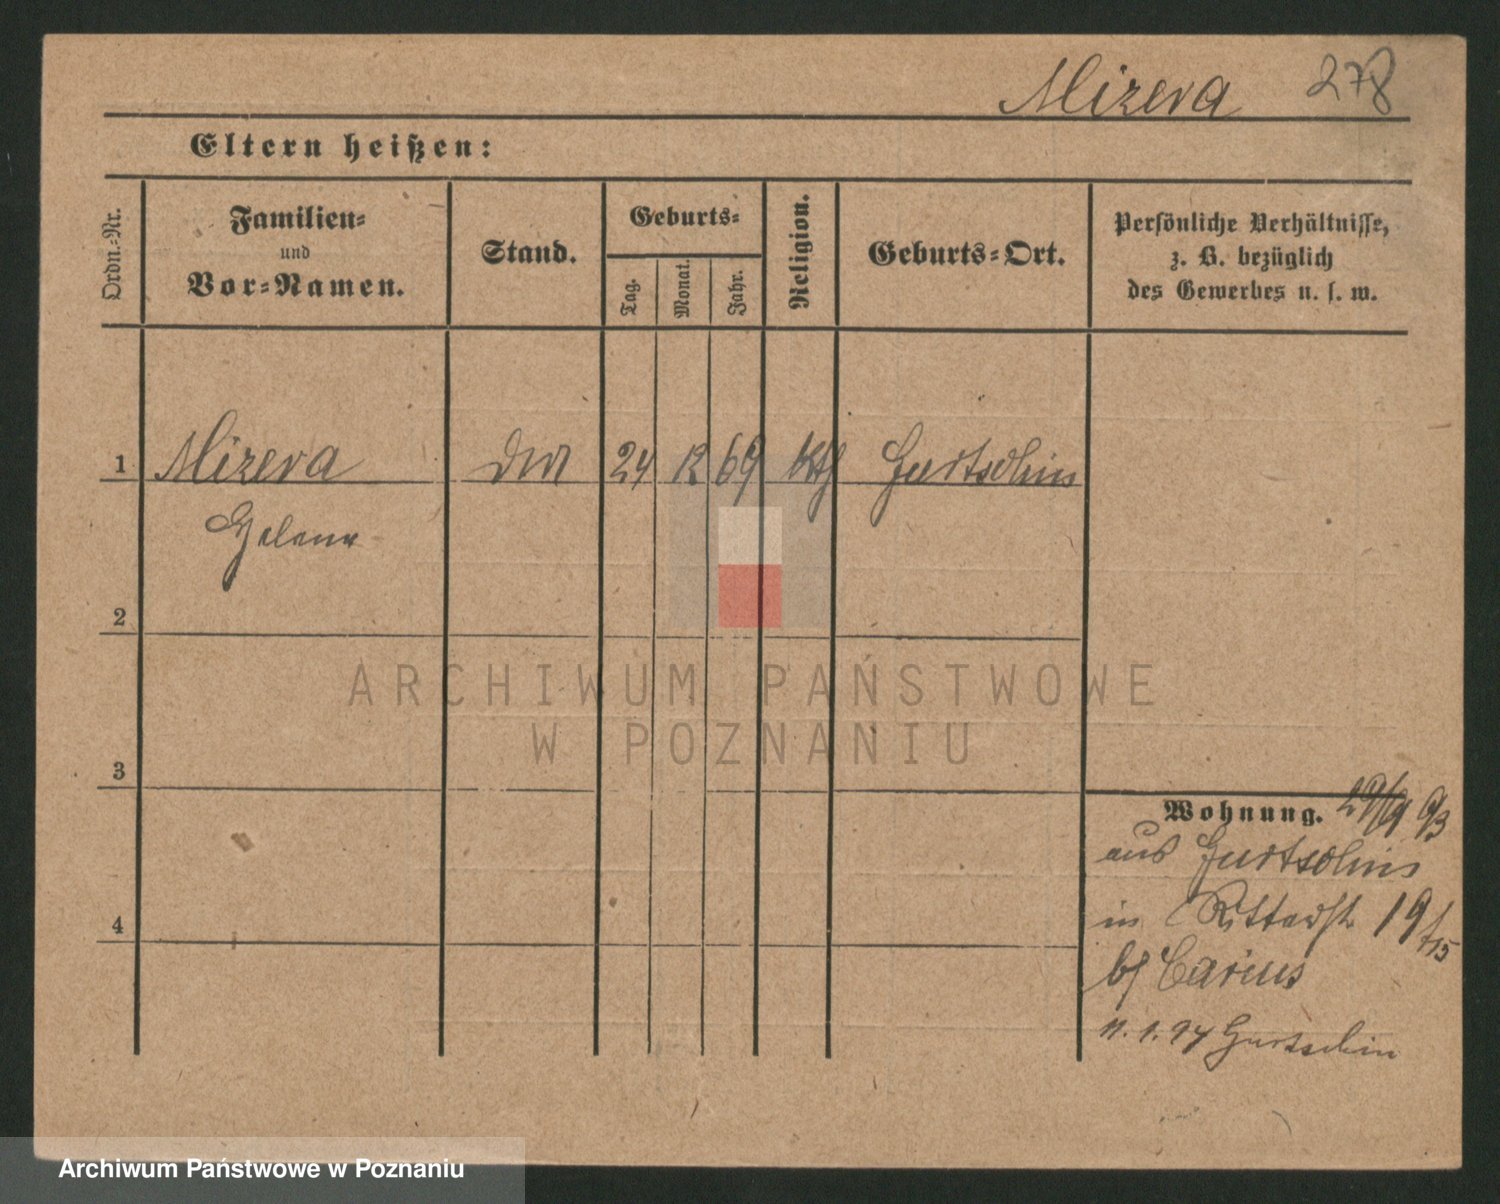 Mizera 278
Eltern heißen:
Ordn.-Nr.
Familien-
und
Vor-Namen.
Stand.
Geburts-
Tag.
Monat.
Jahr.
Religion.
Geburts-Ort.
Persönliche Verhältnisse,
z. B. bezüglich
des Gewerbes u. s. w.
1 Mizera 24 12 69 kth Gurtschin
Helene
2
3
4
Wohnung. 29/9 93
aus Gurtschin
in Ritterstr 19
bj Carius
11.1.94 Gurtschin
ARCHIWUM PAŃSTWOWE
W POZNANIU
Archiwum Państwowe w Poznaniu